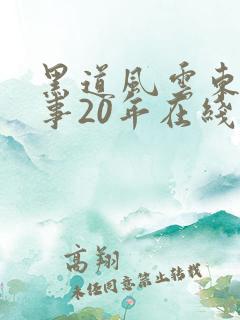 黑道风云东
事20年在线
高翔
未经同意禁止转载